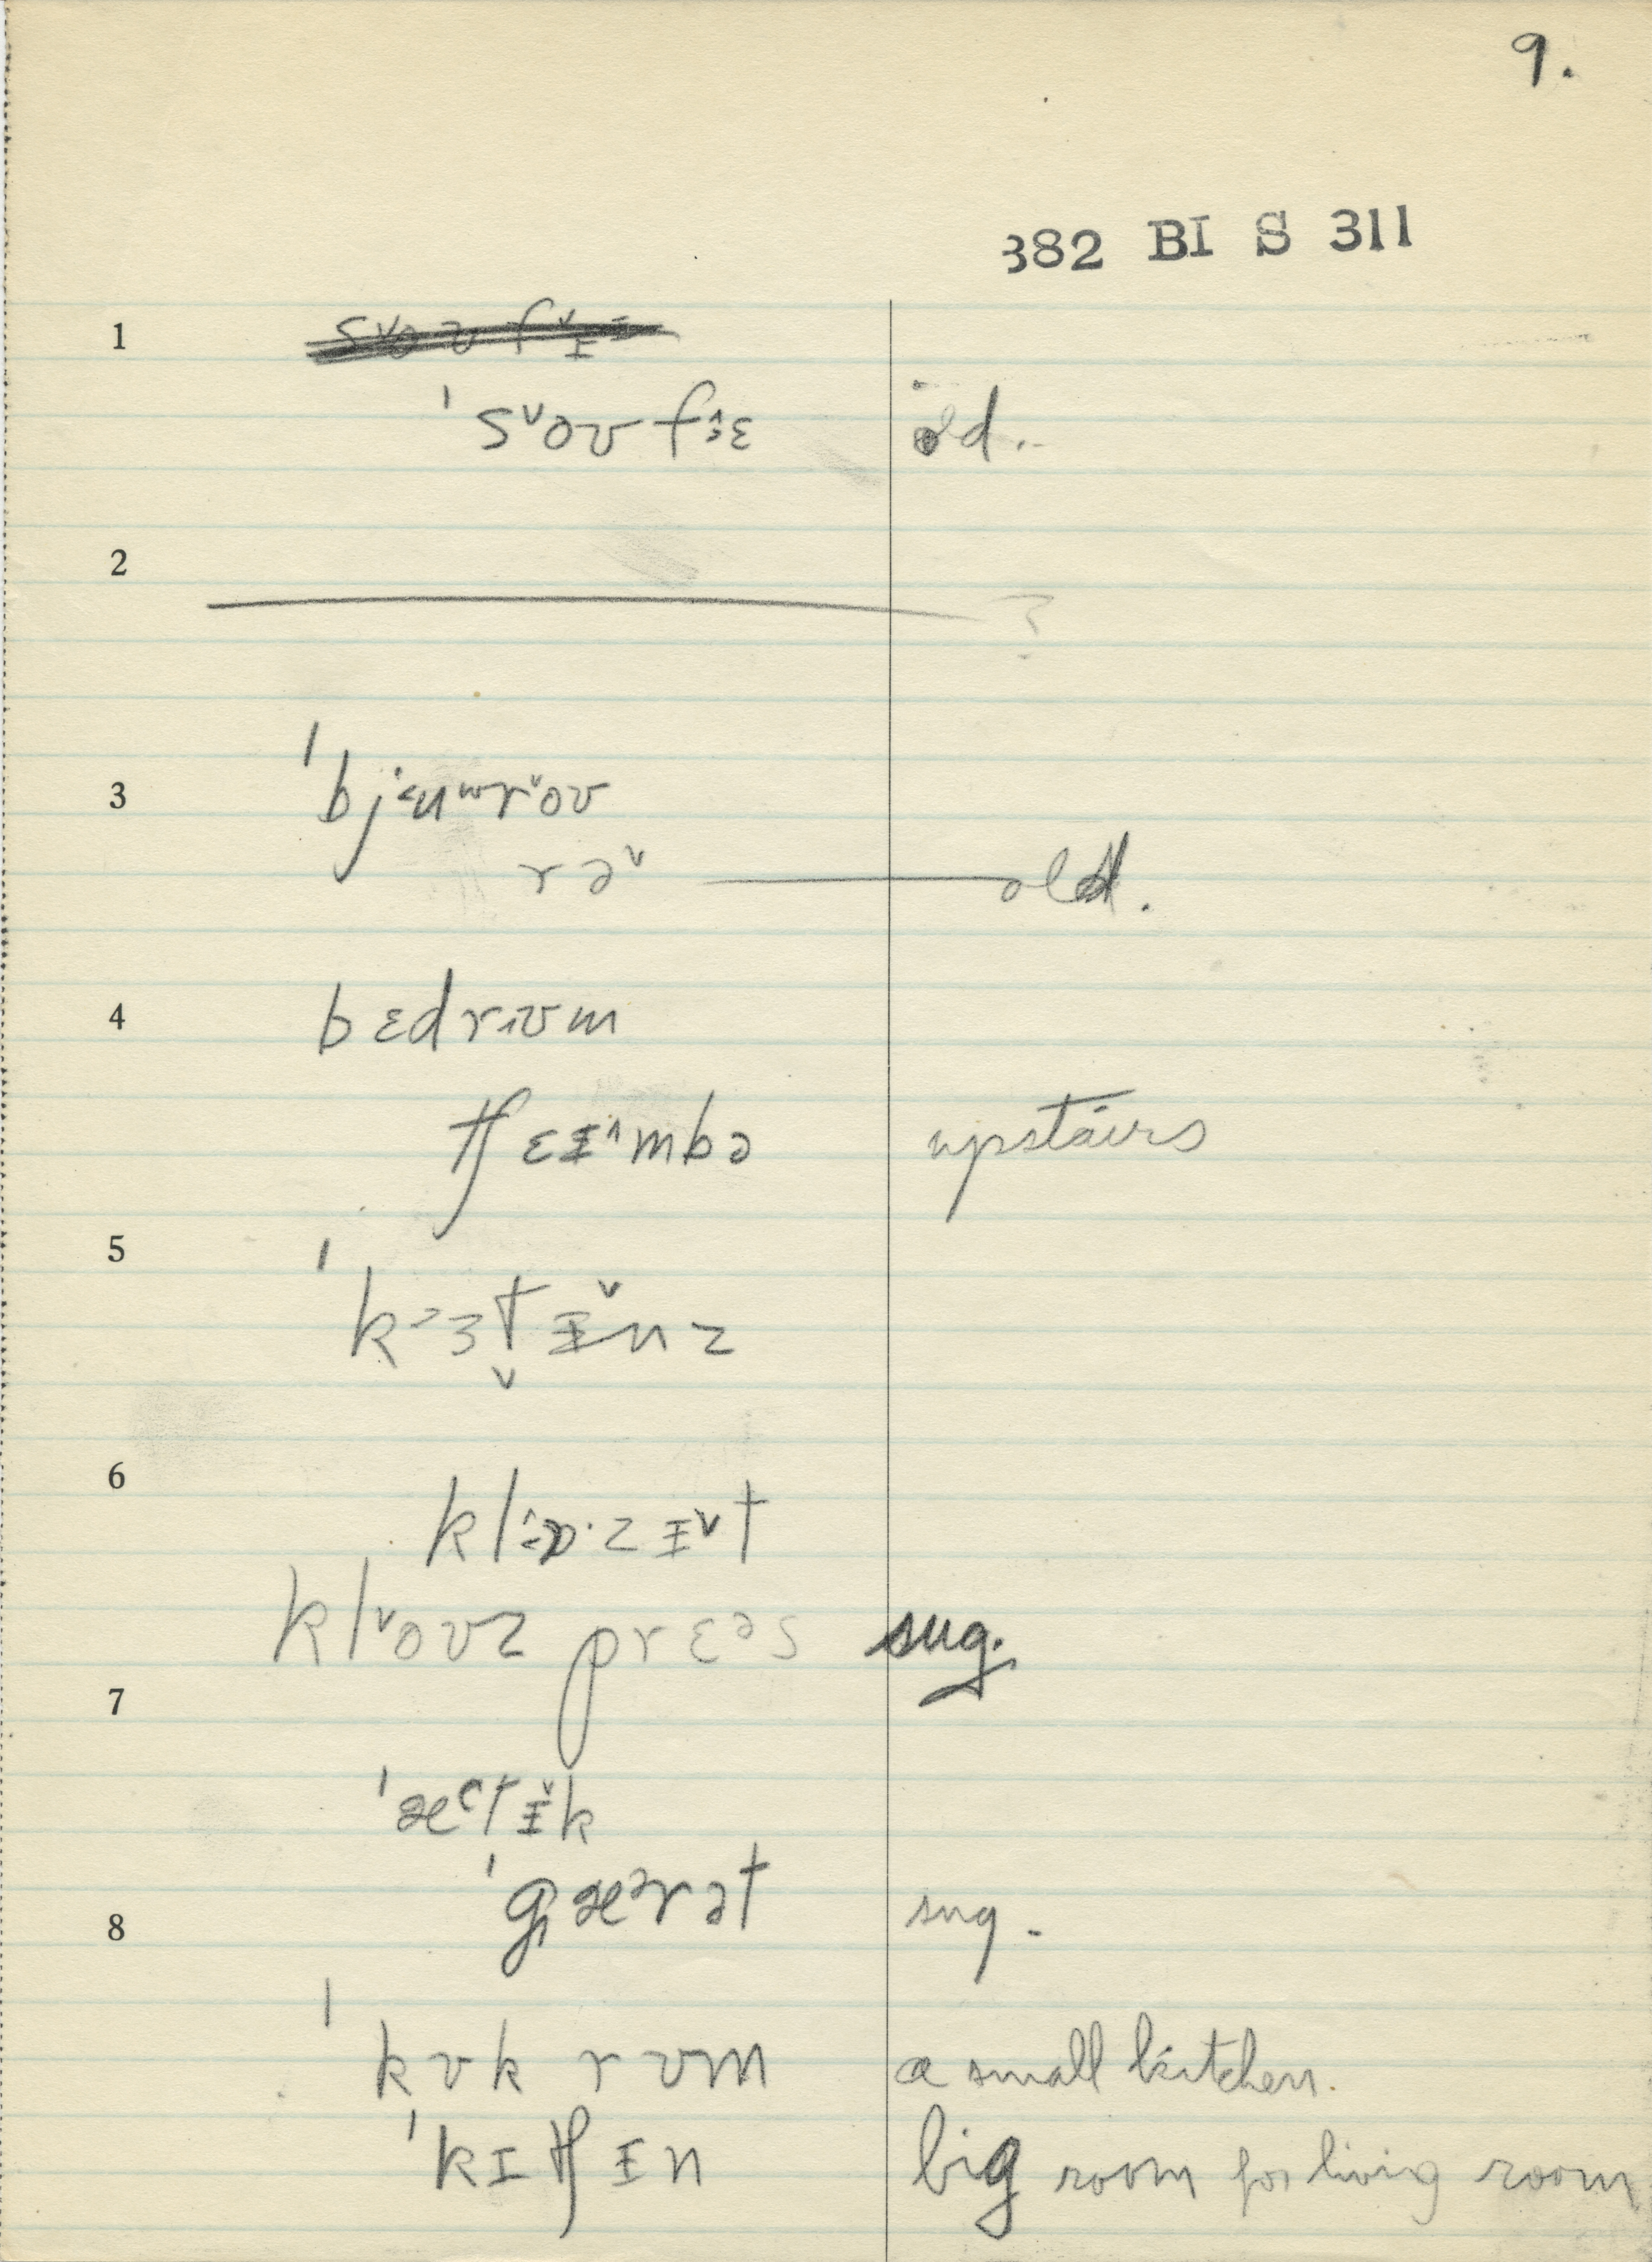 9.
382 BI S 311
1
ˈsˇoʊfɜ^ɛ old..
2
?
3 ˈbjʉʷrˇoʊ
rəˇ old.
4 bɛdrʊm
tʃɛɪ^mbə upstairs
5
ˈkɜtɪˇnz
6
klɒ·zɪˇt
klˇoʊz prɛᵊs sug.
7
ˈætɪˇk
ˈgærət sug.
8
ˈkʊk rʊm a small kitchen.
ˈkɪtʃɪn big room for living room